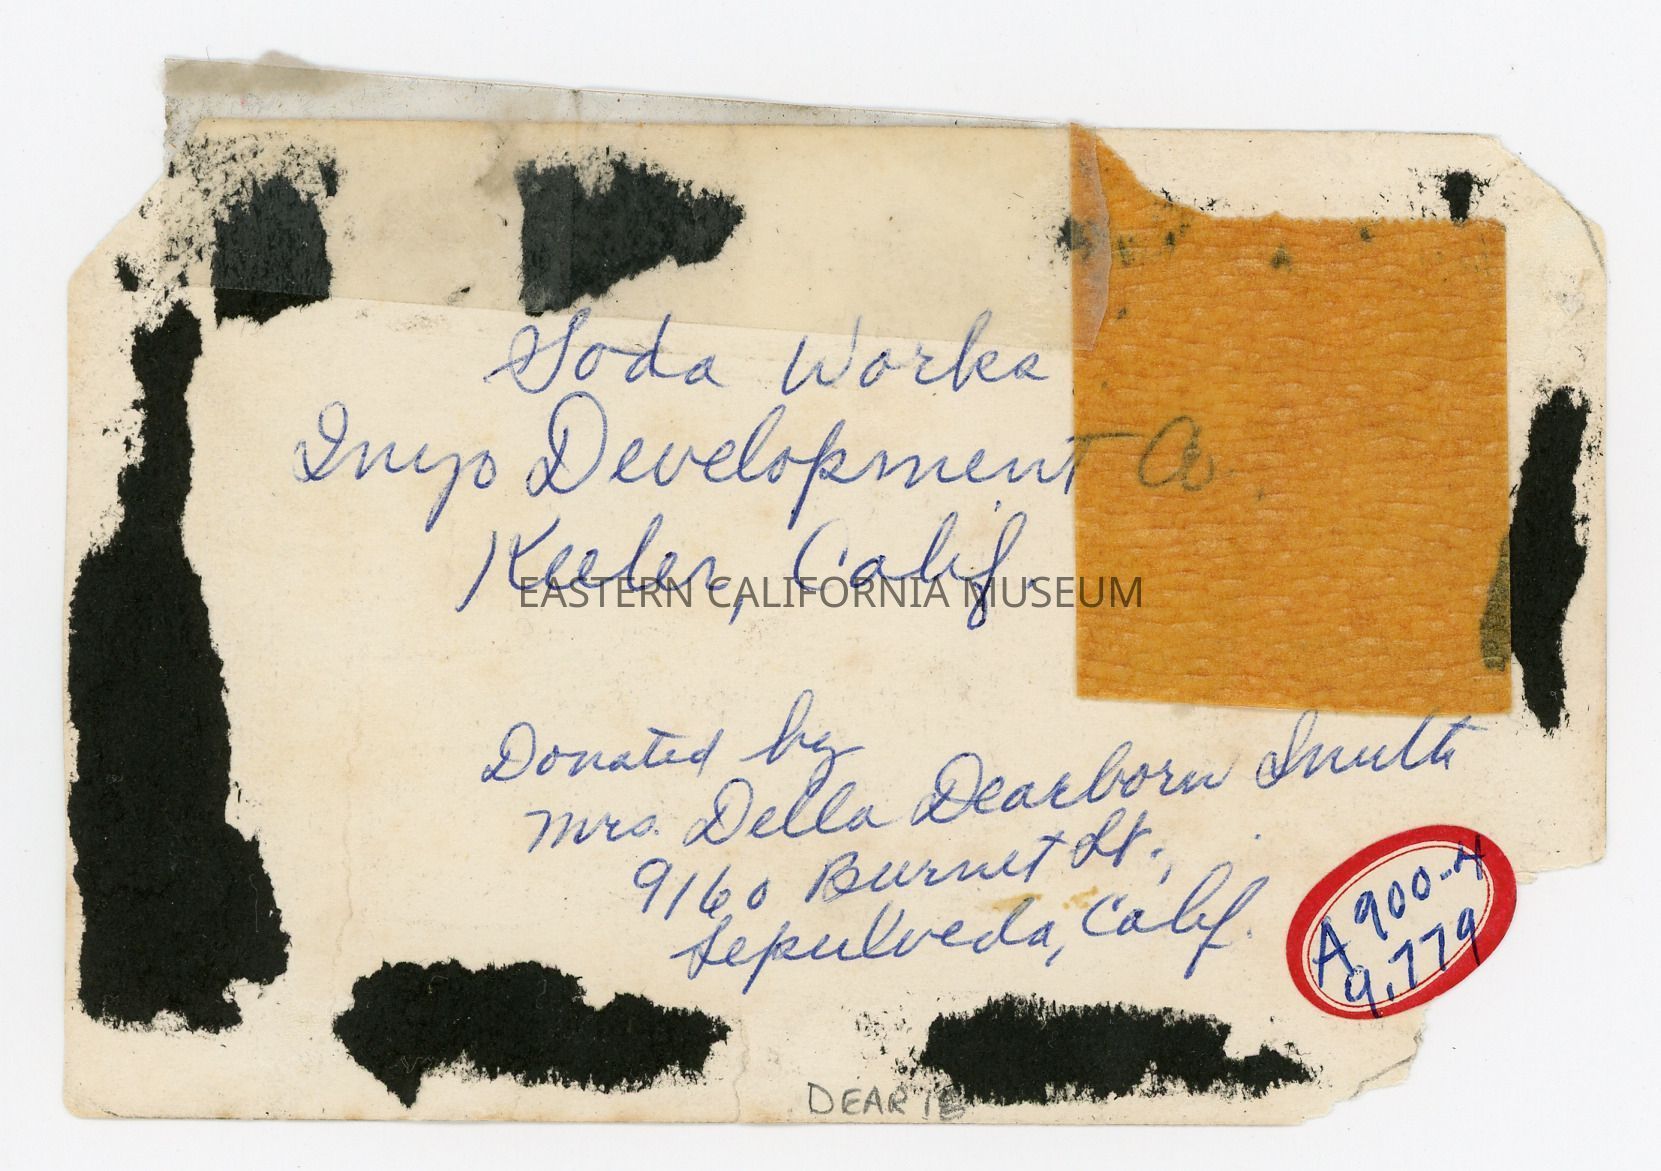 Soda Works
Inyo Development Co.
Keeler, Calif.
EASTERN CALIFORNIA MUSEUM
Donated by
Mrs. Della Dearborn Smith
9160 Burnet St.,
Sepulveda, Calif.
A 900-4
9,779
DEAR